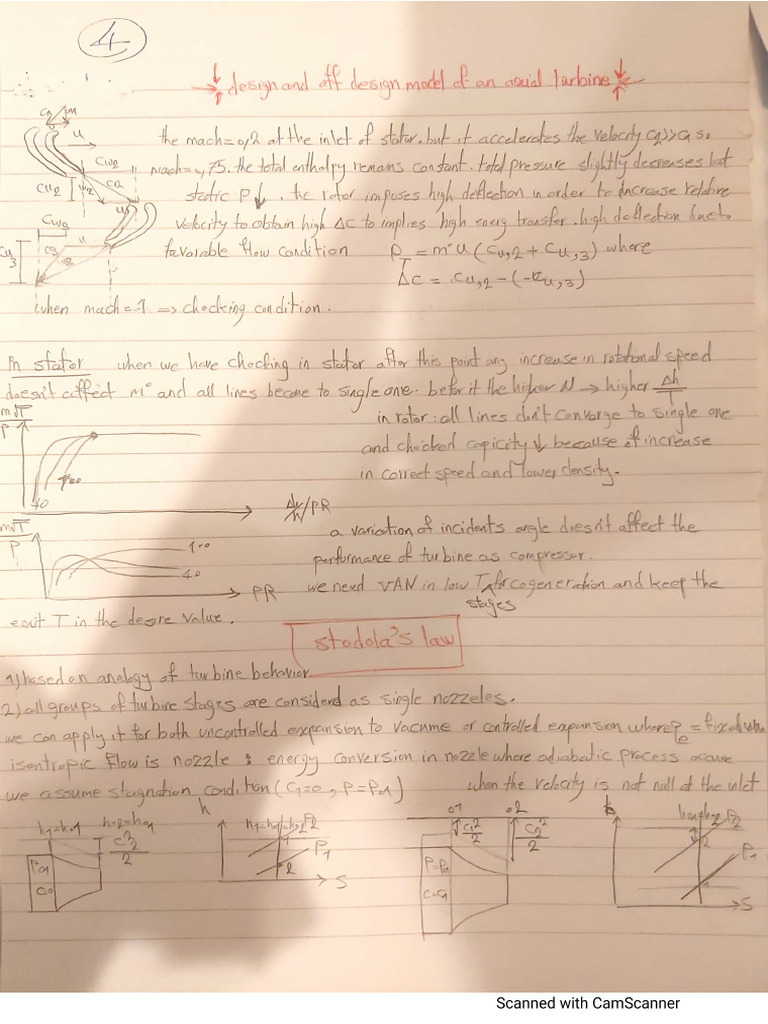 4
design and off design model of an axial turbine
the mach=0,2 at the inlet of stator. but it accelerates the velocity c2>>c1 so
mach=0,75. the total enthalpy remains constant. total pressure slightly decreases but
static P↓. the rotor imposes high deflection in order to increase relative
velocity to obtain high Δc to implies high energ transfer. high deflection due to
favorable flow condition P = m°u(cu,2 + cu,3) where
Δc = cu,2 - (-cu,3)
when mach=1 => chocking condition.
C1
u
Cw2
Cu2
C2
u
Cw3
Cu3
C3
u
In stator when we have chocking in stator after this point any increase in rotational speed
doesn't affect m° and all lines become to single one. befor it the higher N → higher Δh/T
m√T/P
in rotor: all lines didn't converge to single one
and chocked capicity↓ because of increase
in correct speed and lower density.
40
100
/PR
m√T/P
100
40
PR
a variation of incidents angle doesn't affect the
performance of turbine as compressor.
we need VAN in low T stages for cogeneration and keep the
exit T in the desire value.
stodola's law
1) based on analogy of turbine behavior
2) all groups of turbine stages are considerd as single nozzeles.
we can apply it for both uncontrolled expansion to vacume or controlled expansion where Pe = fixed
isentropic flow is nozzle : energy conversion in nozzle where adiabatic process occure
we assume stagnation condition (C1=0, P=P01) when the velocity is not null at the inlet
h1=h01
h02=h01
C2²/2
P01
C=0
h
P1
2
S
01
02
C1²/2
C2²/2
P=P1
C=C1
h
P2
P1
S
Scanned with CamScanner